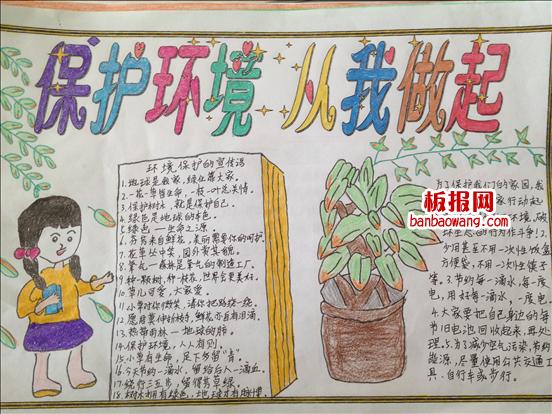 保护环境 从我做起
环境保护的宣传语
1.地球是我家,绿化靠大家。
2.一花一草皆生命,一枝一叶总关情。
3.保护树木,就是保护自己。
4.绿色是地球的本色。
5.绿色——生命之源
6.芬芳来自鲜花,美丽需要你的呵护
7.花草丛中笑,园外赏其貌。
8.
9.种一颗树,种一枝花,世界会更美的
10.草儿可爱,大家爱。
11.小草对你微笑,请你把路绕一绕。
12.愿用
13.热带雨林——地球的肺。
14.保护环境,人人有别
15.小草有生命,足下多留“青”。
16.今天节约一滴水,留给后人一滴血。
17.绕行三五步,留得芳草绿。
18.树木拥有绿色,地球才有脉搏
为了保护我们的家园,我
家行动起
环境,破
坏生态的行为作斗争!2.
少用甚至不用一次性饭盒
方便袋,不用一次性筷子
等。3.节约每一滴水,每一度
电,用好每一滴水,一度电。
4.大家要把自己身边的每
节旧电池回收起来,再处
理。5.为了减少空气污染,节约
能源,尽量使用公共交通工
具、自行车或步行。
板报网
banbaowang.com